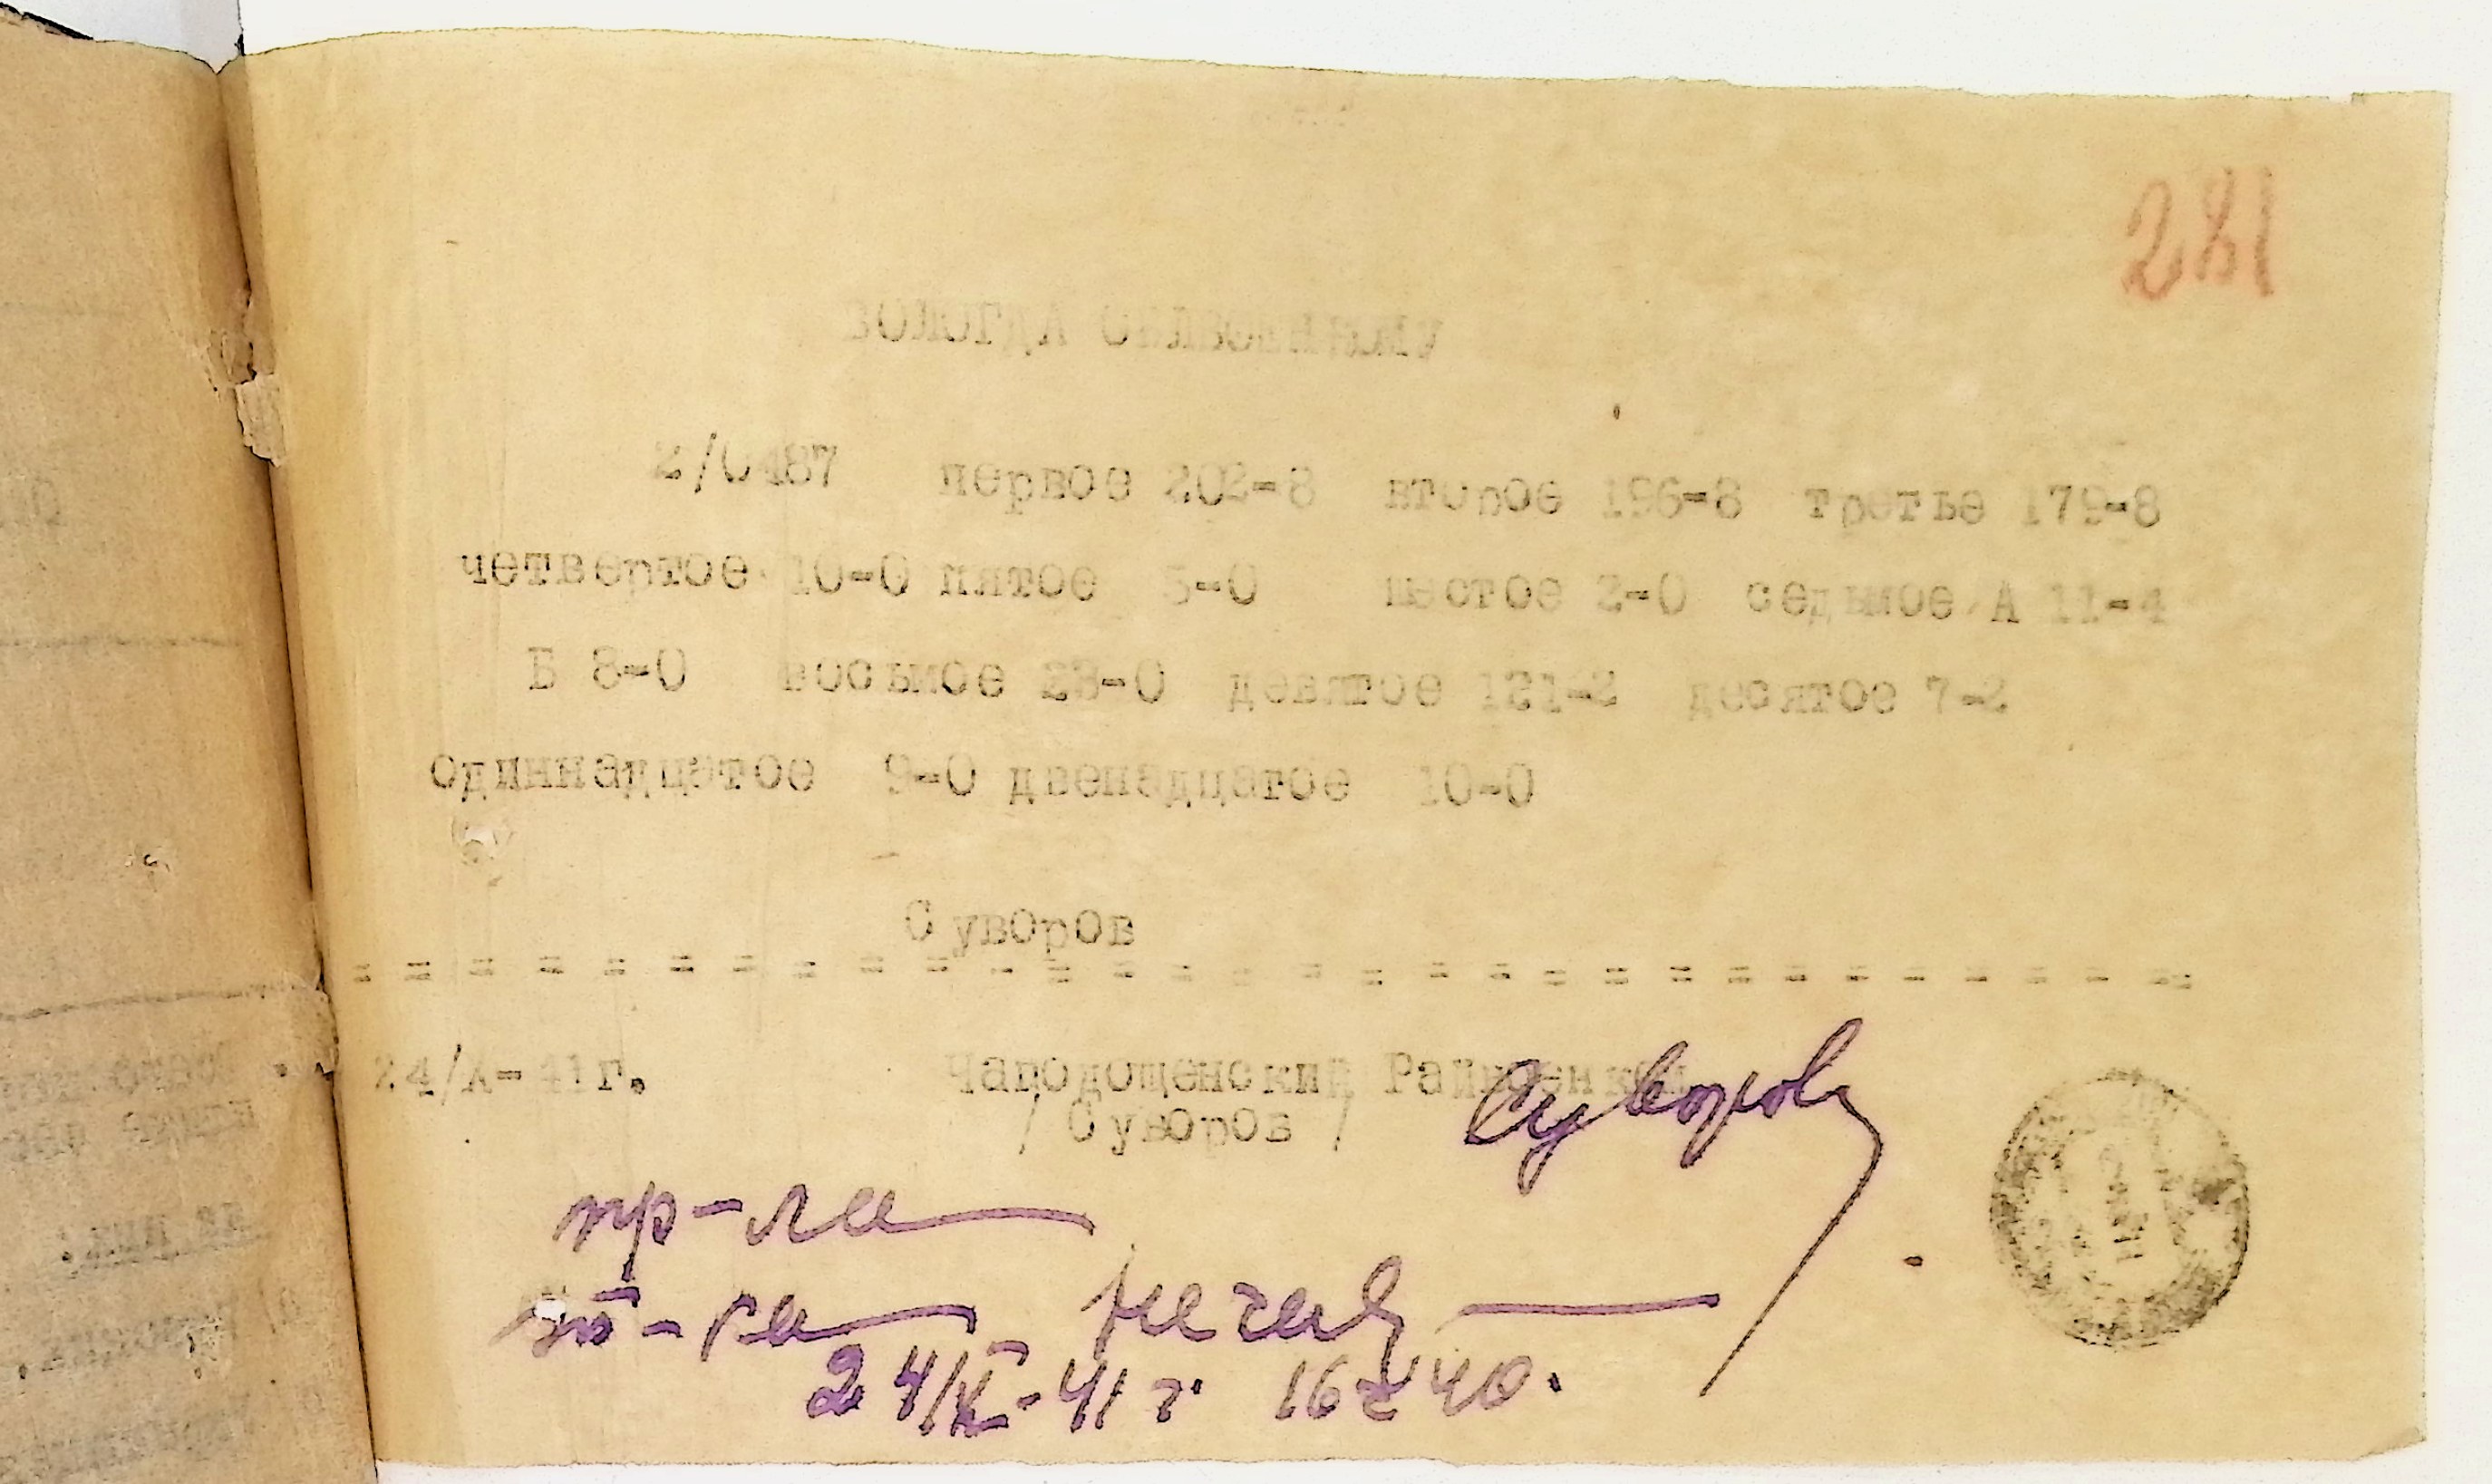 281
ВОЛОГДА ОБЛВОЕНКОМУ
2/0487 первое 202-8 второе 196-8 третье 179-8
четвертое 10-0 пятое 5-0 шестое 2-0 седьмое А 11-4
Б 8-0 восьмое 23-0 девятое 121-2 десятое 7-2
одиннадцатое 9-0 двенадцатое 10-0
Суворов
= = = = = = = = = = = = = = = = = = = = = = = = = = = = =
24/X-41г. Чагодощенский Райвоенком
/ Суворов / Суворов
пр-ла
24/X-41 г. 16 ч 40.